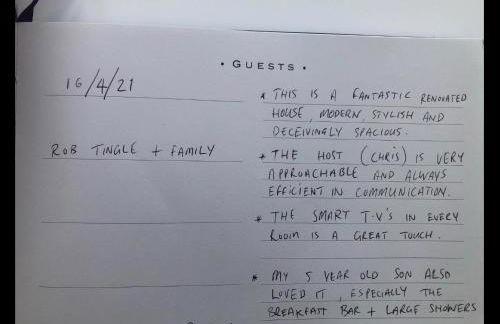 • GUESTS •
16/4/21
* THIS IS A FANTASTIC RENOVATED
HOUSE, MODERN, STYLISH AND
DECEIVINGLY SPACIOUS.
ROB TINGLE + FAMILY
* THE HOST (CHRIS) IS VERY
APPROACHABLE AND ALWAYS
EFFICIENT IN COMMUNICATION.
* THE SMART T.V'S IN EVERY
ROOM IS A GREAT TOUCH.
* MY 5 YEAR OLD SON ALSO
LOVED IT, ESPECIALLY THE
BREAKFAST BAR + LARGE SHOWERS